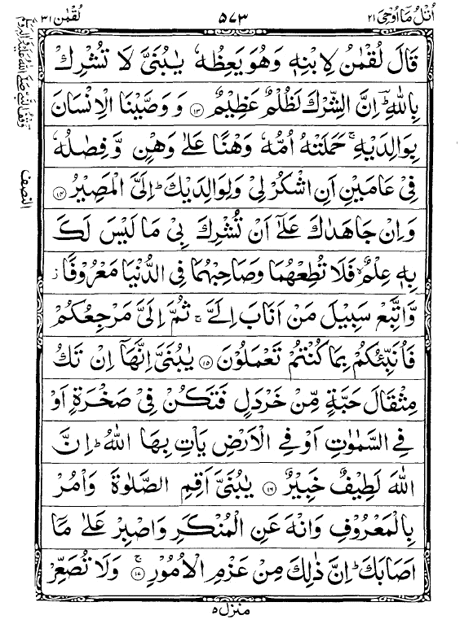 اُتْلُ مَآ اُوْحِیَ ٢١ ٥٧٣ لُقْمٰن ٣١
قَالَ لُقْمٰنُ لِابْنِهٖ وَهُوَ يَعِظُهٗ يٰبُنَىَّ لَا تُشْرِكْ
بِاللّٰهِ ؕ اِنَّ الشِّرْكَ لَظُلْمٌ عَظِيْمٌ ﴿١٣﴾ وَ وَصَّيْنَا الْاِنْسَانَ
بِوَالِدَيْهِ ۚ حَمَلَتْهُ اُمُّهٗ وَهْنًا عَلٰى وَهْنٍ وَّ فِصٰلُهٗ
فِىْ عَامَيْنِ اَنِ اشْكُرْ لِىْ وَلِوَالِدَيْكَ ؕ اِلَىَّ الْمَصِيْرُ ﴿١٤﴾
وَاِنْ جَاهَدٰكَ عَلٰٓى اَنْ تُشْرِكَ بِىْ مَا لَيْسَ لَكَ
بِهٖ عِلْمٌ ۙ فَلَا تُطِعْهُمَا وَصَاحِبْهُمَا فِى الدُّنْيَا مَعْرُوْفًا ز
وَّاتَّبِعْ سَبِيْلَ مَنْ اَنَابَ اِلَىَّ ۚ ثُمَّ اِلَىَّ مَرْجِعُكُمْ
فَاُنَبِّئُكُمْ بِمَا كُنْتُمْ تَعْمَلُوْنَ ﴿١٥﴾ يٰبُنَىَّ اِنَّهَاۤ اِنْ تَكُ
مِثْقَالَ حَبَّةٍ مِّنْ خَرْدَلٍ فَتَكُنْ فِىْ صَخْرَةٍ اَوْ
فِى السَّمٰوٰتِ اَوْ فِى الْاَرْضِ يَاْتِ بِهَا اللّٰهُ ؕ اِنَّ
اللّٰهَ لَطِيْفٌ خَبِيْرٌ ﴿١٦﴾ يٰبُنَىَّ اَقِمِ الصَّلٰوةَ وَاْمُرْ
بِالْمَعْرُوْفِ وَانْهَ عَنِ الْمُنْكَرِ وَاصْبِرْ عَلٰى مَاۤ
اَصَابَكَ ؕ اِنَّ ذٰلِكَ مِنْ عَزْمِ الْاُمُوْرِ ۚ ﴿١٧﴾ وَلَا تُصَعِّرْ
منزل ٥
وقف النبي صلى الله عليه وسلم
النصف